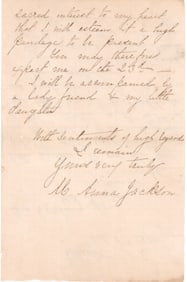 sacred interest to my heart
that I will esteem it a high
privilege to be present.
You may therefore
expect me on the 23rd —
I will be accompanied by
a lady friend & my little
daughter
With sentiments of high regard
I remain
Yours very truly
M. Anna Jackson